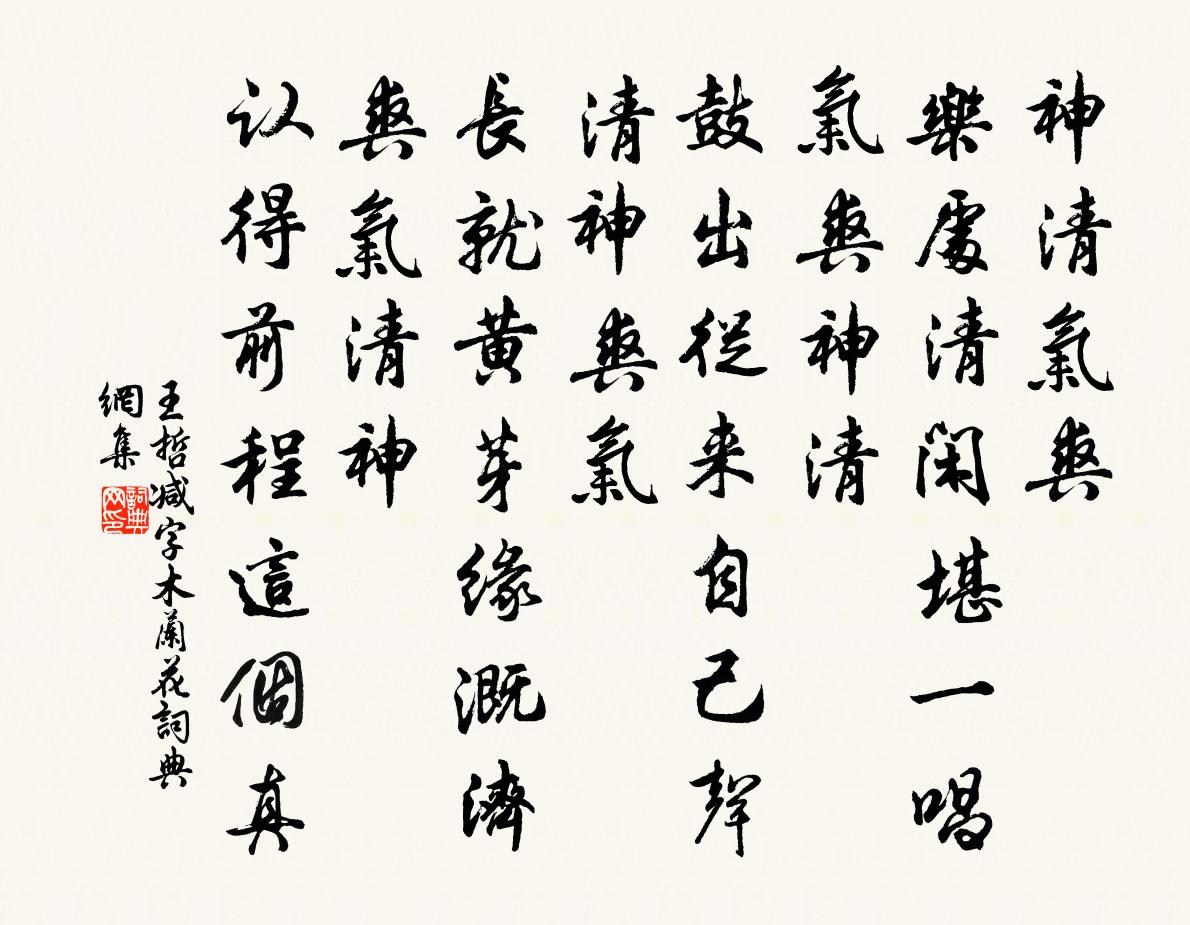 神清氣爽
樂處清閑堪一唱
氣爽神清
鼓出從来自己聲
清神爽氣
長就黄芽緣溉濟
爽氣清神
认得前程這個真
王哲减字木蘭花詞典
網集
詞典
网印